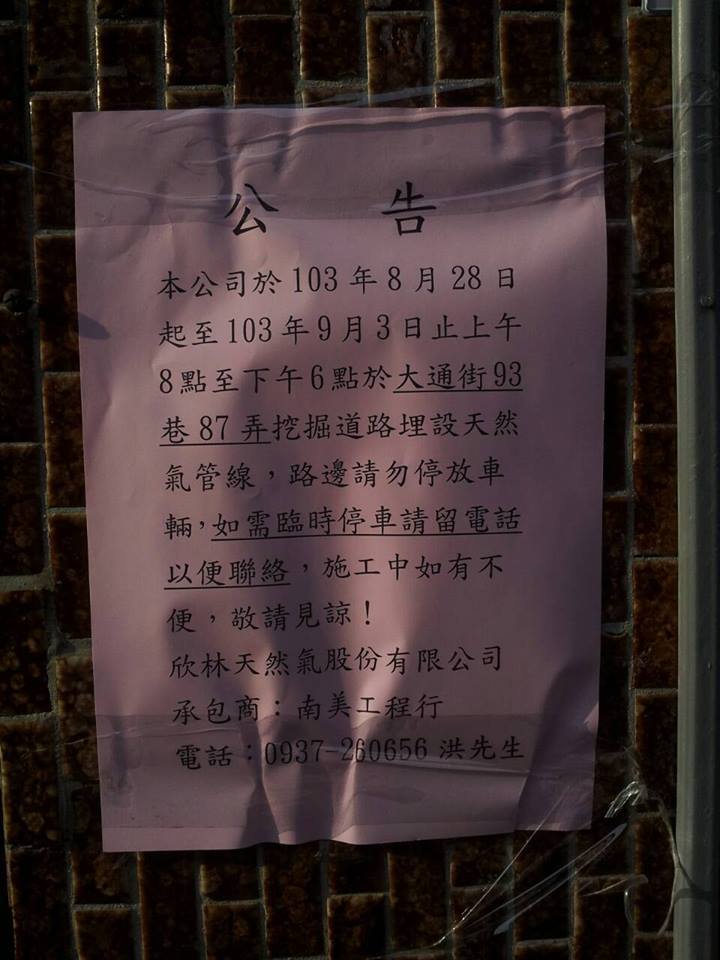 公 告
本公司於 103 年 8 月 28 日
起至 103 年 9 月 3 日止上午
8 點至下午 6 點於大通街 93
巷 87 弄挖掘道路埋設天然
氣管線,路邊請勿停放車
輛,如需臨時停車請留電話
以便聯絡,施工中如有不
便,敬請見諒!
欣林天然氣股份有限公司
承包商:南美工程行
電話:0937-260656 洪先生